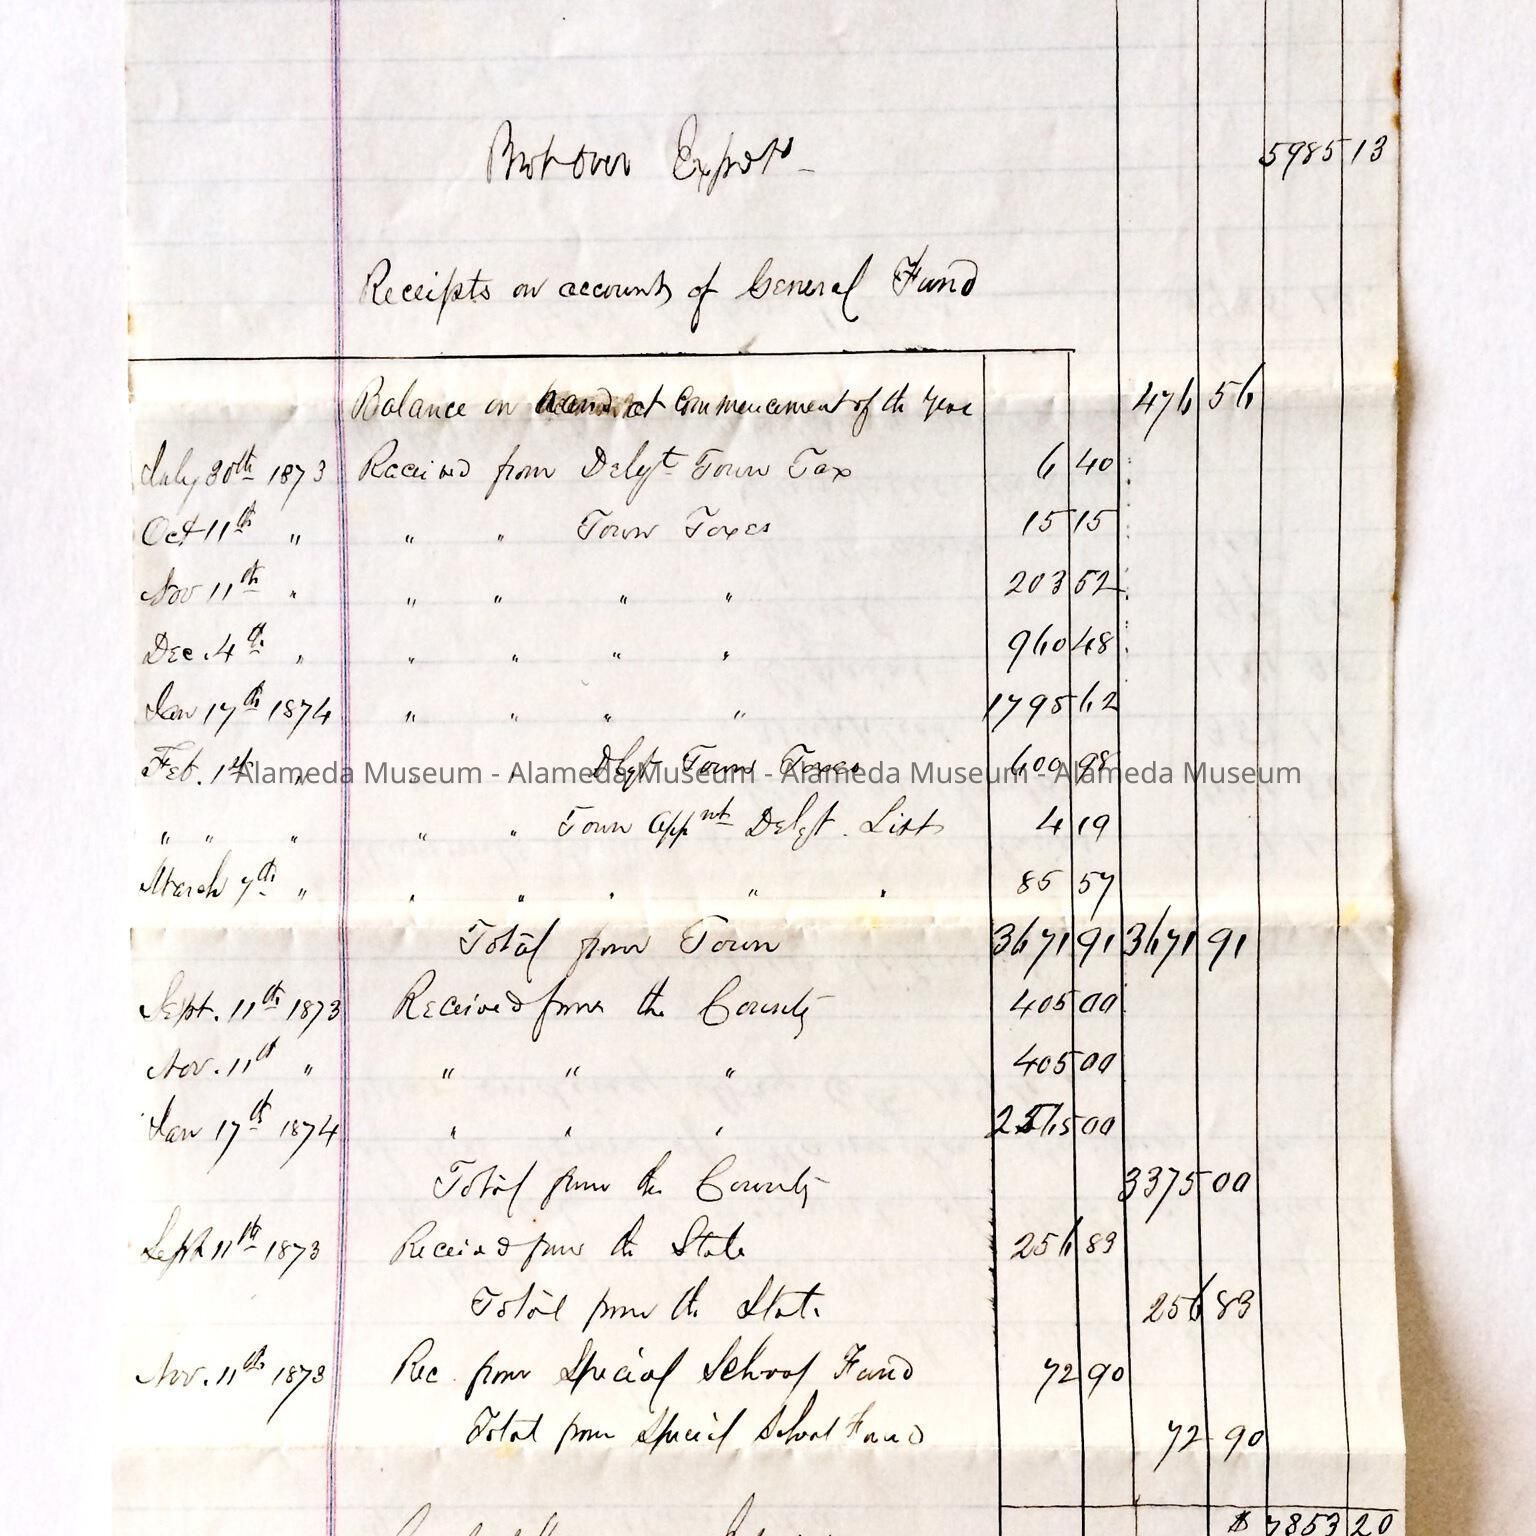 Brot over Expdts 5985 13
Receipts on accounts of General Fund
Balance on hand at Commencement of the year 476 56
July 30th 1873 Received from Delqt Town Tax 6 40
Oct 11th " " " Town Taxes 15 15
Nov 11th " " " " " 203 52
Dec. 4th " " " " " 960 48
Jan 17th 1874 " " " " 1795 62
Feb. 1st " " Dlqt Town Taxes 600 98
Alameda Museum - Alameda Museum - Alameda Museum - Alameda Museum
" " " " " Town appnt Delqt. List 4 19
March 7th " " " " " " 85 57
Total from Town 3671 91 3671 91
Sept. 11th 1873 Received from the County 405 00
Nov. 11th " " " " 405 00
Jan 17th 1874 " " " 2565 00
Total from the County 3375 00
Sept 11th 1873 Received from the State 256 83
Total from the State 256 83
Nov. 11th 1873 Rec. from Special School Fund 72 90
Total from Special School Fund 72 90
$ 7853 20